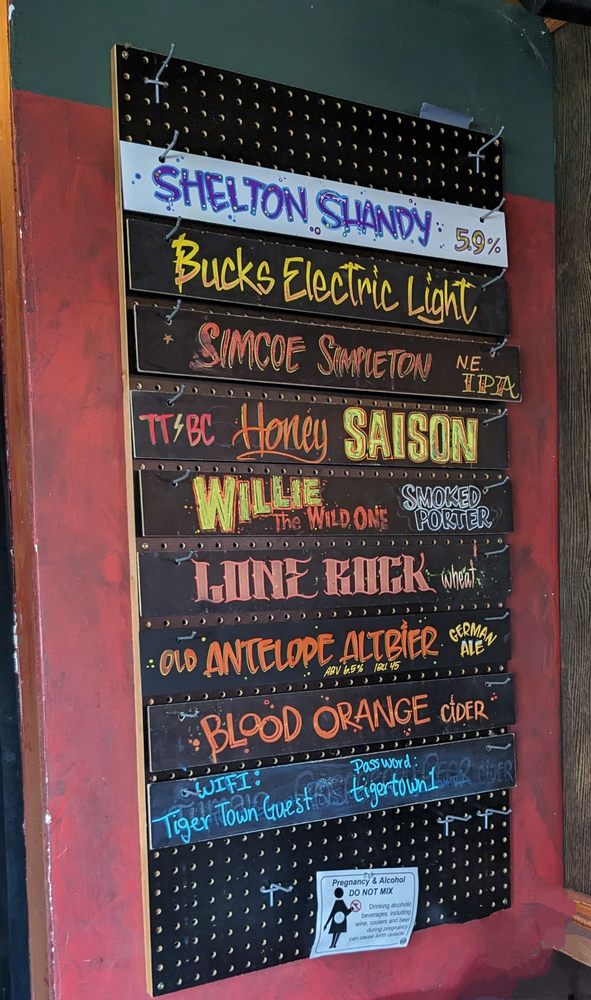 SHELTON SHANDY 5.9%
Bucks Electric Light
SIMCOE SIMPLETON N.E.
IPA
TT BC Honey SAISON
WILLIE The WILD ONE SMOKED
PORTER
LONE ROCK wheat
OLD ANTELOPE ALTBIER GERMAN
ALE
ABV 6.5% IBU 45
BLOOD ORANGE CIDER
WIFI: Password:
Tiger Town Guest tigertown1
CIDER
Pregnancy & Alcohol
DO NOT MIX
Drinking alcoholic
beverages, including
wine, coolers and beer
during pregnancy
can cause birth defects.